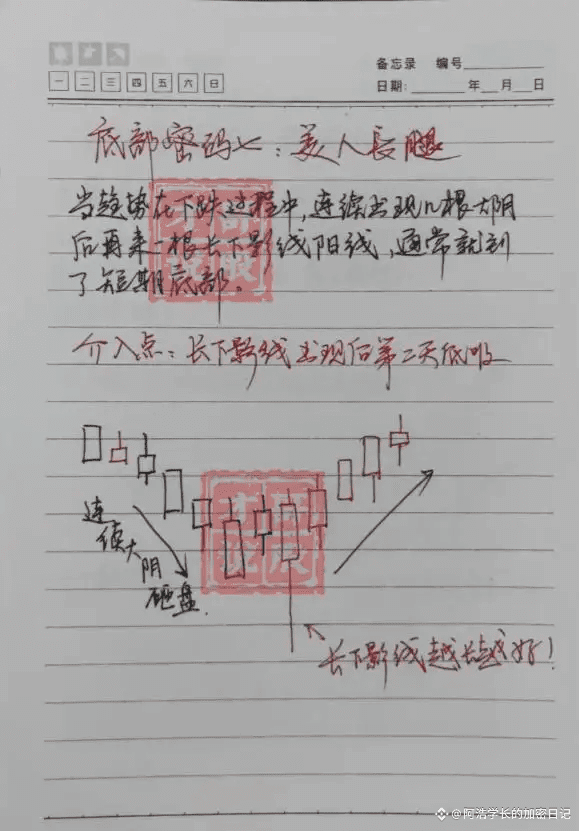 备忘录 编号
一 二 三 四 五 六 日
日期: 年 月 日
底部密码七:美人長腿
当趋势在下跌过程中,连续出现几根大阴
后再来一根长下影线阳线,通常就到
了短期底部。
介入点:长下影线出现后第二天低吸
连续大阴砸盘
长下影线越长越好!
@阿浩学长的加密日记